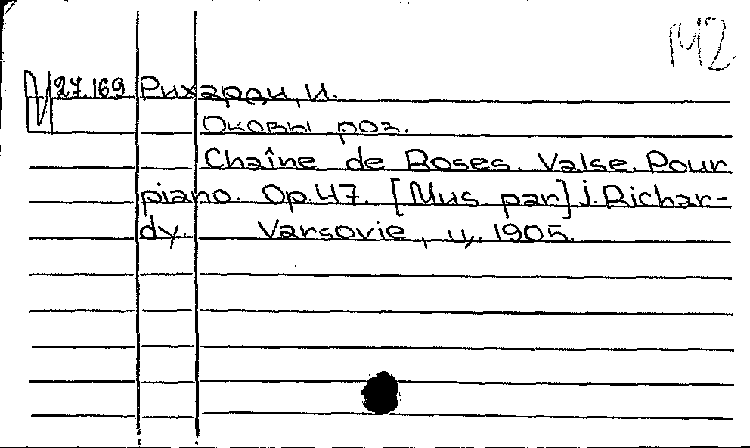 М2
27.169 Рихарди, И.
Оковы роз.
Chaîne de Roses. Valse. Pour
piano. Op.47. [Mus par] J. Richar-
dy. Varsovie, ц. 1905.